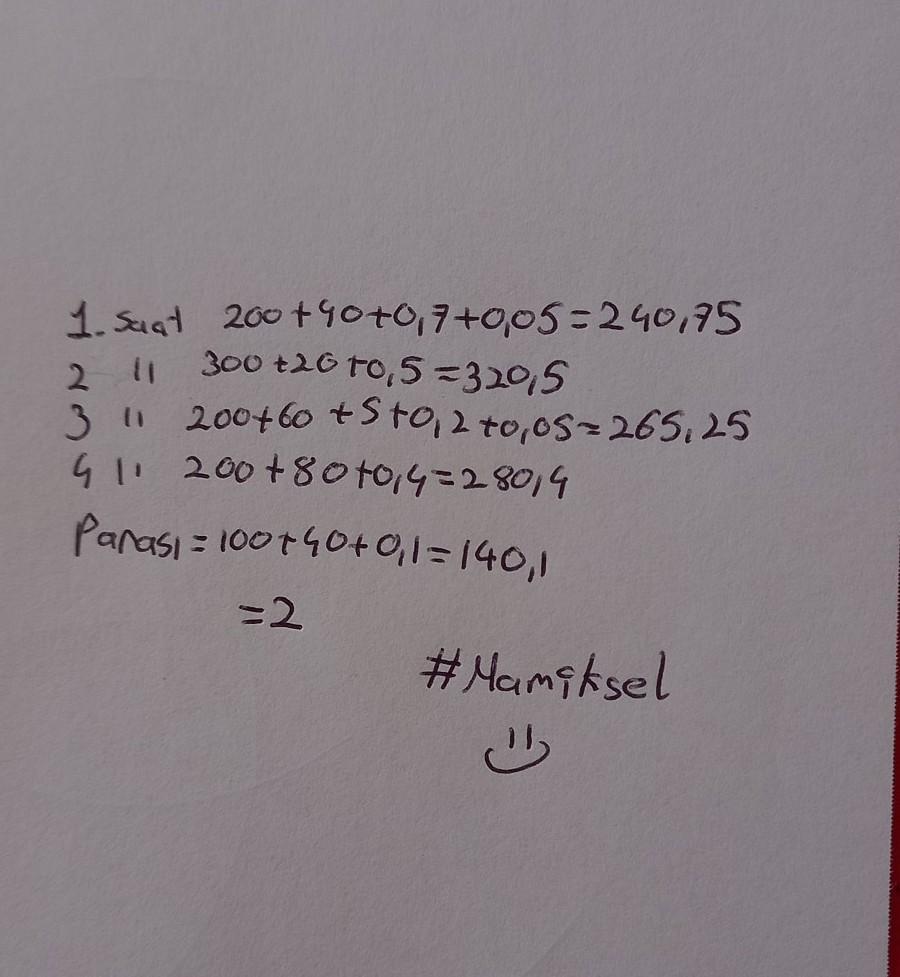 1. Saat 200+40+0,7+0,05=240,75
2 " 300+20+0,5=320,5
3 " 200+60+5+0,2+0,05=265,25
4 " 200+80+0,4=280,4
Parası=100+40+0,1=140,1
=2
#Mamiksel